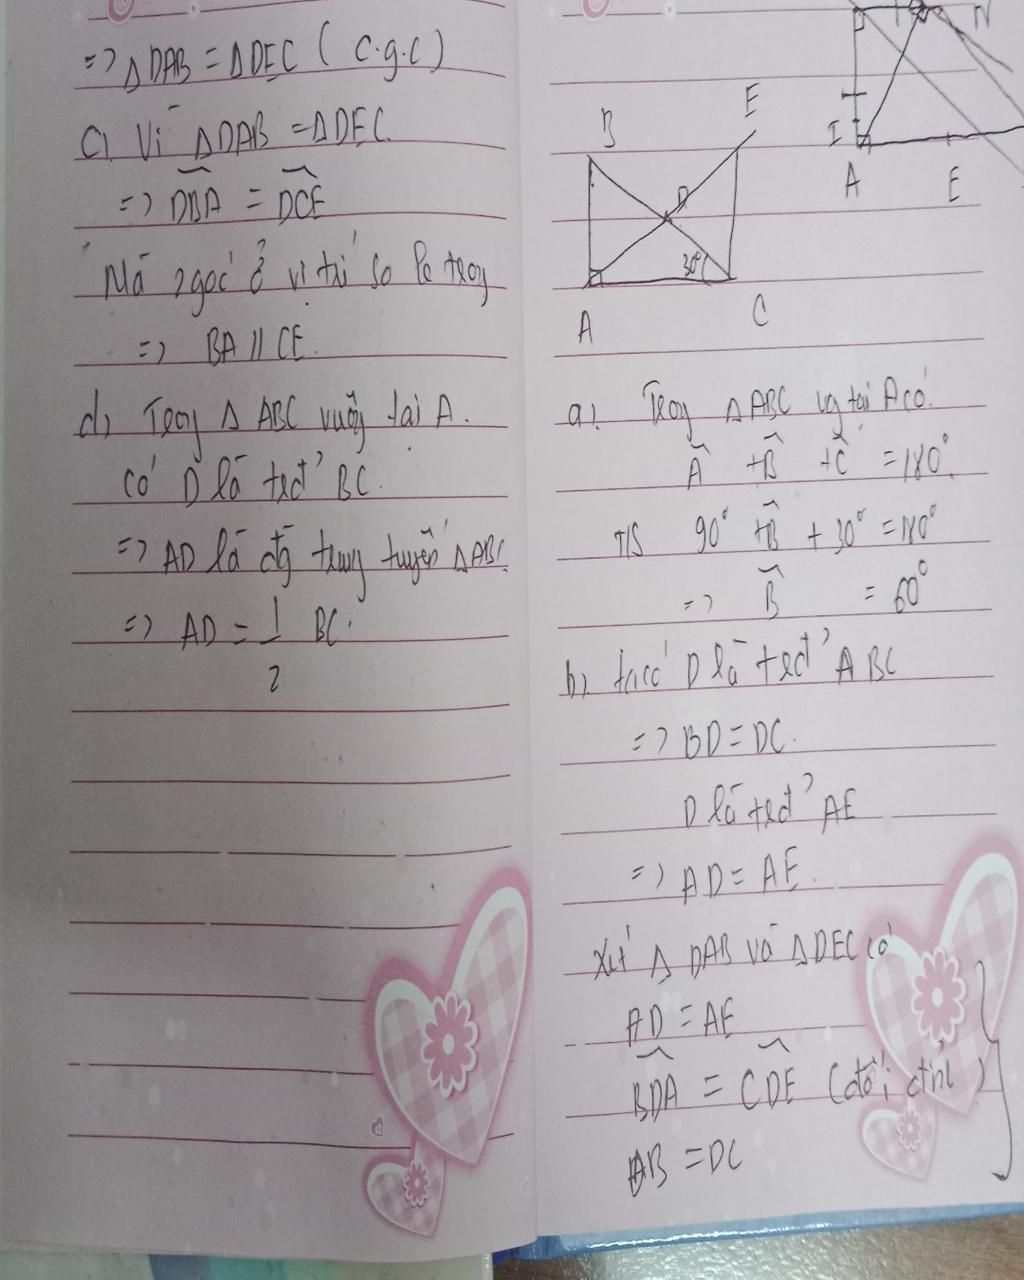 => Δ DAB = Δ DEC ( c.g.c)
c) Vì Δ DAB = Δ DEC
=> DBA = DCE
Mà 2 góc ở vị trí so le trog
=> BA // CE.
d) Trog Δ ABC vuôg tại A.
có D là trđ' BC.
=> AD là đg trung tuyến Δ ABC
=> AD = 1/2 BC.
N
I
A E
B E
D
30°
A C
a) Trog Δ ABC vg tại A có.
A + B + C = 180°
T/S 90° + B + 30° = 180°
=> B = 60°
b) ta có D là trđ' BC
=> BD = DC.
D là trđ' AE
=> AD = AE.
Xét Δ DAB và Δ DEC có
AD = AE
BDA = CDE (đối đỉnh)
DB = DC